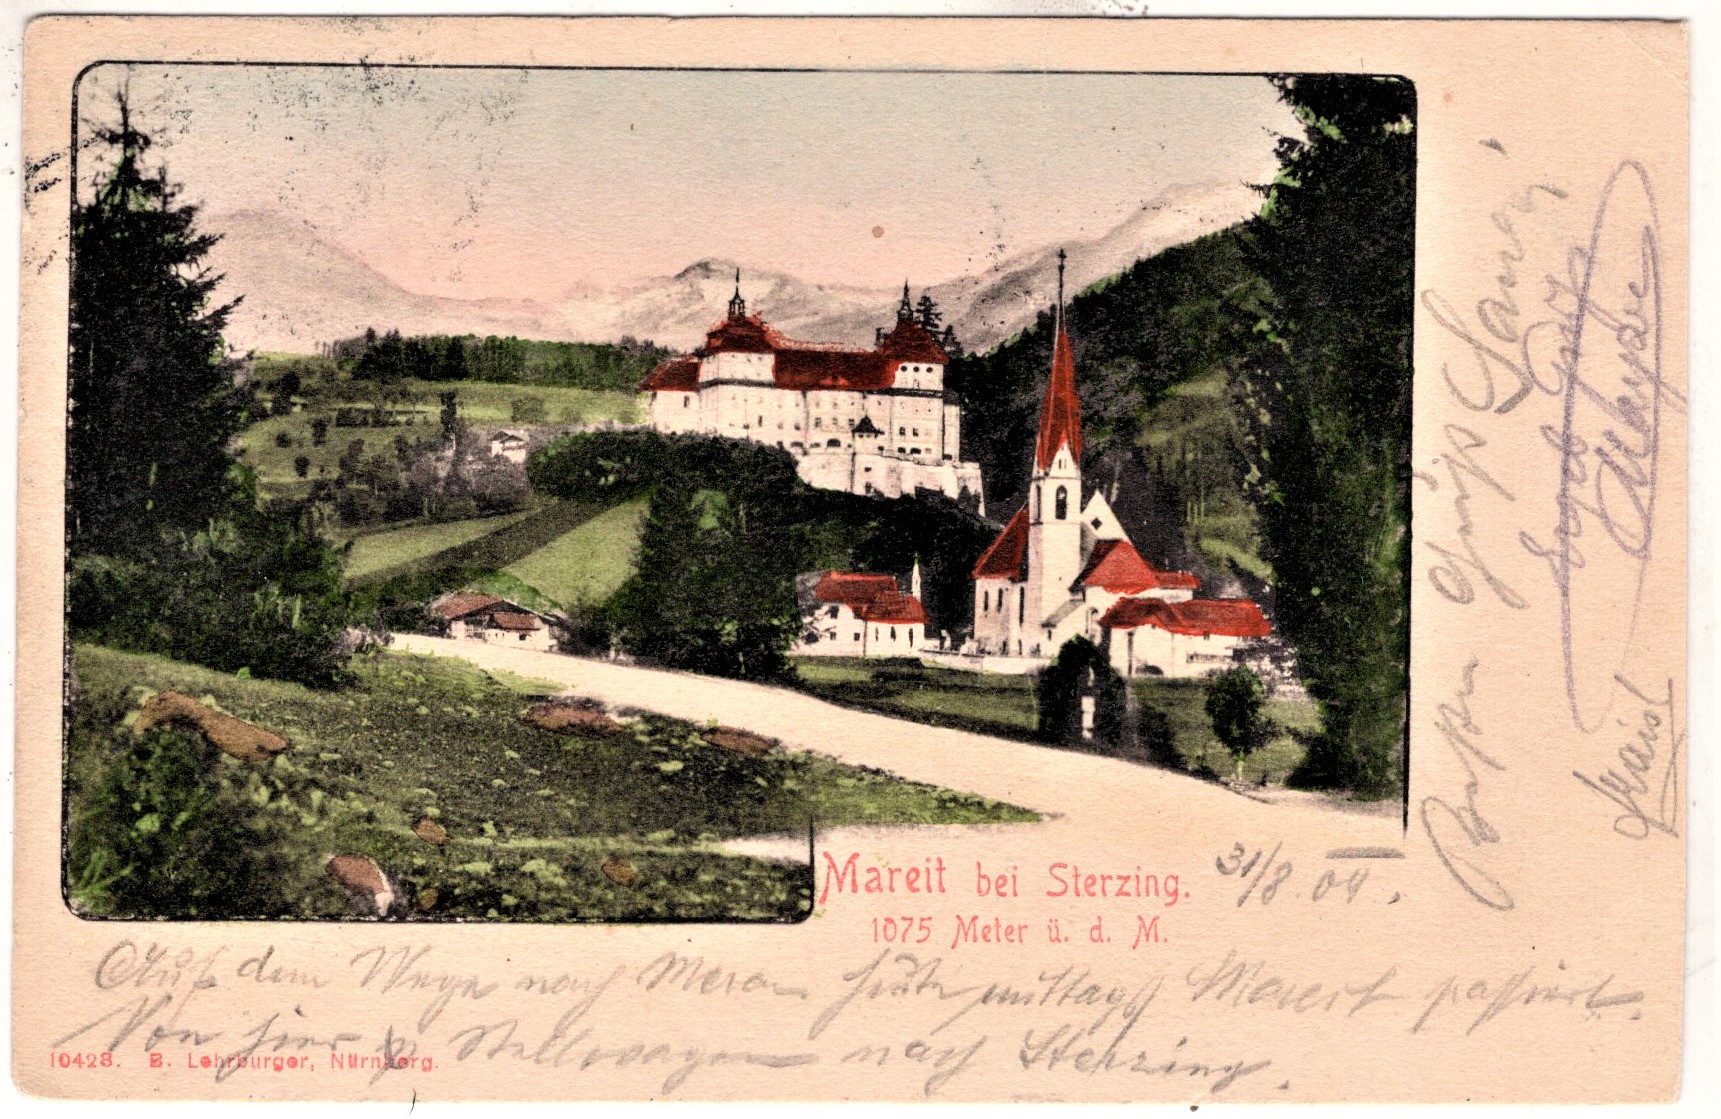 Mareit bei Sterzing.
1075 Meter ü. d. M.
31/8. 04.
Auf dem Wege nach Meran heute mittags Mareit passiert.
Von hier p Stellwagen nach Sterzing.
10428. B. Lehrburger, Nürnberg.
Besten Gruß